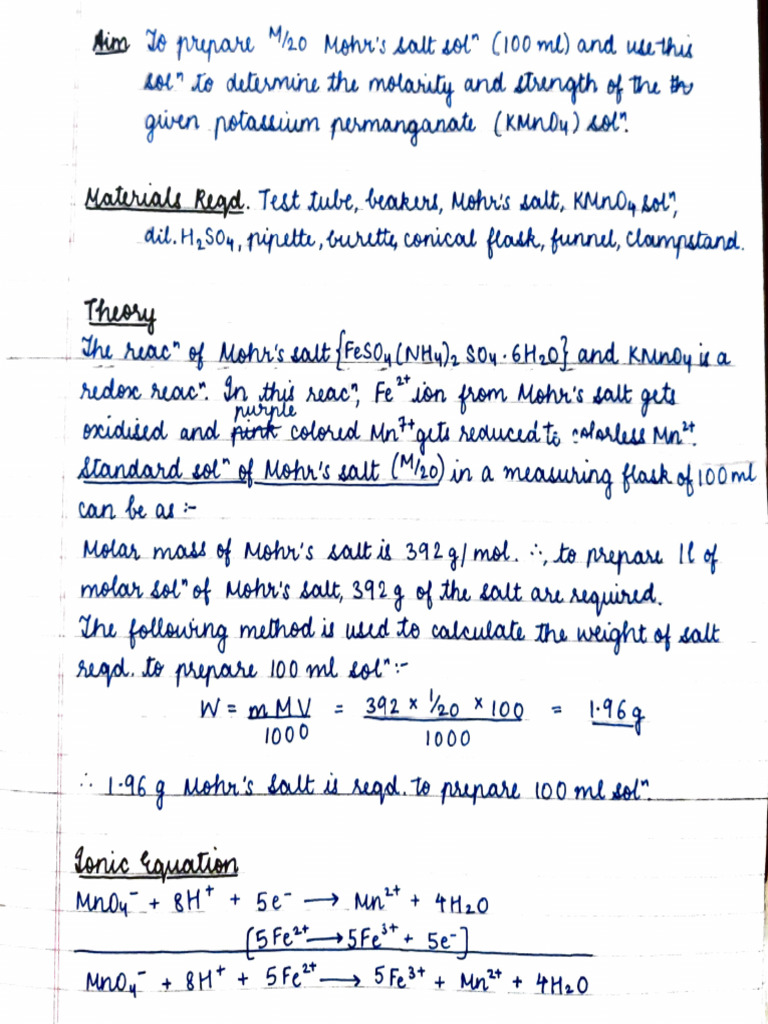 Aim To prepare M/20 Mohr's salt solⁿ (100 ml) and use this
solⁿ to determine the molarity and strength of the
given potassium permanganate (KMnO₄) solⁿ.
Materials Reqd. Test tube, beakers, Mohr's salt, KMnO₄ solⁿ,
dil. H₂SO₄, pipette, burette, conical flask, funnel, clampstand.
Theory
The reacⁿ of Mohr's salt {FeSO₄(NH₄)₂ SO₄·6H₂O} and KMnO₄ is a
redox reacⁿ. In this reacⁿ, Fe²⁺ ion from Mohr's salt gets
purple
oxidised and pink colored Mn⁷⁺ gets reduced to colorless Mn²⁺.
Standard solⁿ of Mohr's salt (M/20) in a measuring flask of 100 ml
can be as :-
Molar mass of Mohr's salt is 392 g/mol. ∴, to prepare 1l of
molar solⁿ of Mohr's salt, 392 g of the salt are required.
The following method is used to calculate the weight of salt
reqd. to prepare 100 ml solⁿ:-
W = mMV = 392 × 1/20 × 100 = 1.96 g
1000 1000
∴ 1.96 g Mohr's salt is reqd. to prepare 100 ml solⁿ.
Ionic Equation
MnO₄⁻ + 8H⁺ + 5e⁻ → Mn²⁺ + 4H₂O
[5Fe²⁺ → 5Fe³⁺ + 5e⁻]
MnO₄⁻ + 8H⁺ + 5Fe²⁺ → 5Fe³⁺ + Mn²⁺ + 4H₂O